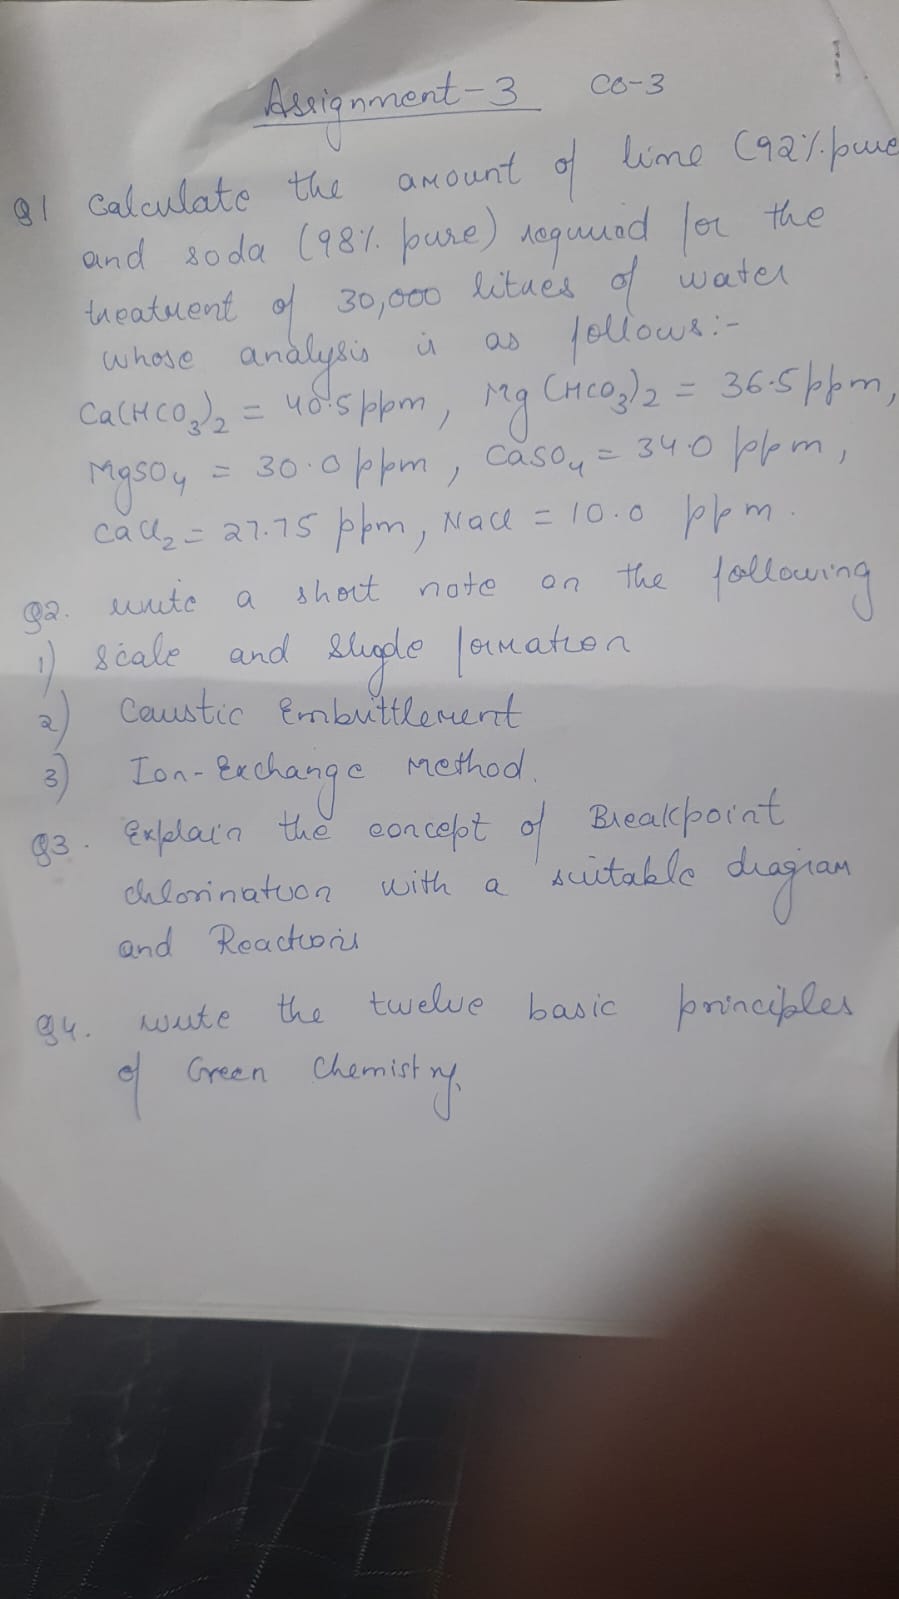 Assignment-3 CO-3
Q1 Calculate the amount of lime (92% pure
and soda (98% pure) required for the
treatment of 30,000 litres of water
whose analysis is as follows:-
Ca(HCO₃)₂ = 40.5 ppm, Mg(HCO₃)₂ = 36.5 ppm,
MgSO₄ = 30.0 ppm, CaSO₄ = 34.0 ppm,
CaCl₂ = 27.75 ppm, NaCl = 10.0 ppm.
Q2. write a short note on the following
1) Scale and Slugde formation
2) Caustic Embrittlement
3) Ion-Exchange Method.
Q3. Explain the concept of Breakpoint
chlorination with a suitable diagram
and Reactions
Q4. write the twelve basic principles
of Green Chemistry.